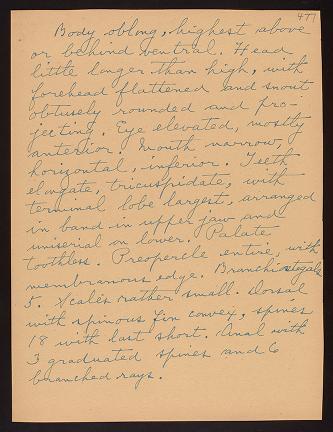 477
Body oblong, highest above
or behind ventral. Head
little longer than high, with
forehead flattened and snout
obtusely rounded and pro-
jecting. Eye elevated, mostly
anterior. Mouth narrow,
horizontal, inferior. Teeth
elongate, tricuspidate, with
terminal lobe largest, arranged
in band in upper jaw and
uniserial on lower. Palate
toothless. Preopercle entire, with
membranous edge. Branchiostegals
5. Scales rather small. Dorsal
with spinous fin convex, spines
18 with last short. Anal with
3 graduated spines and 6
branched rays.